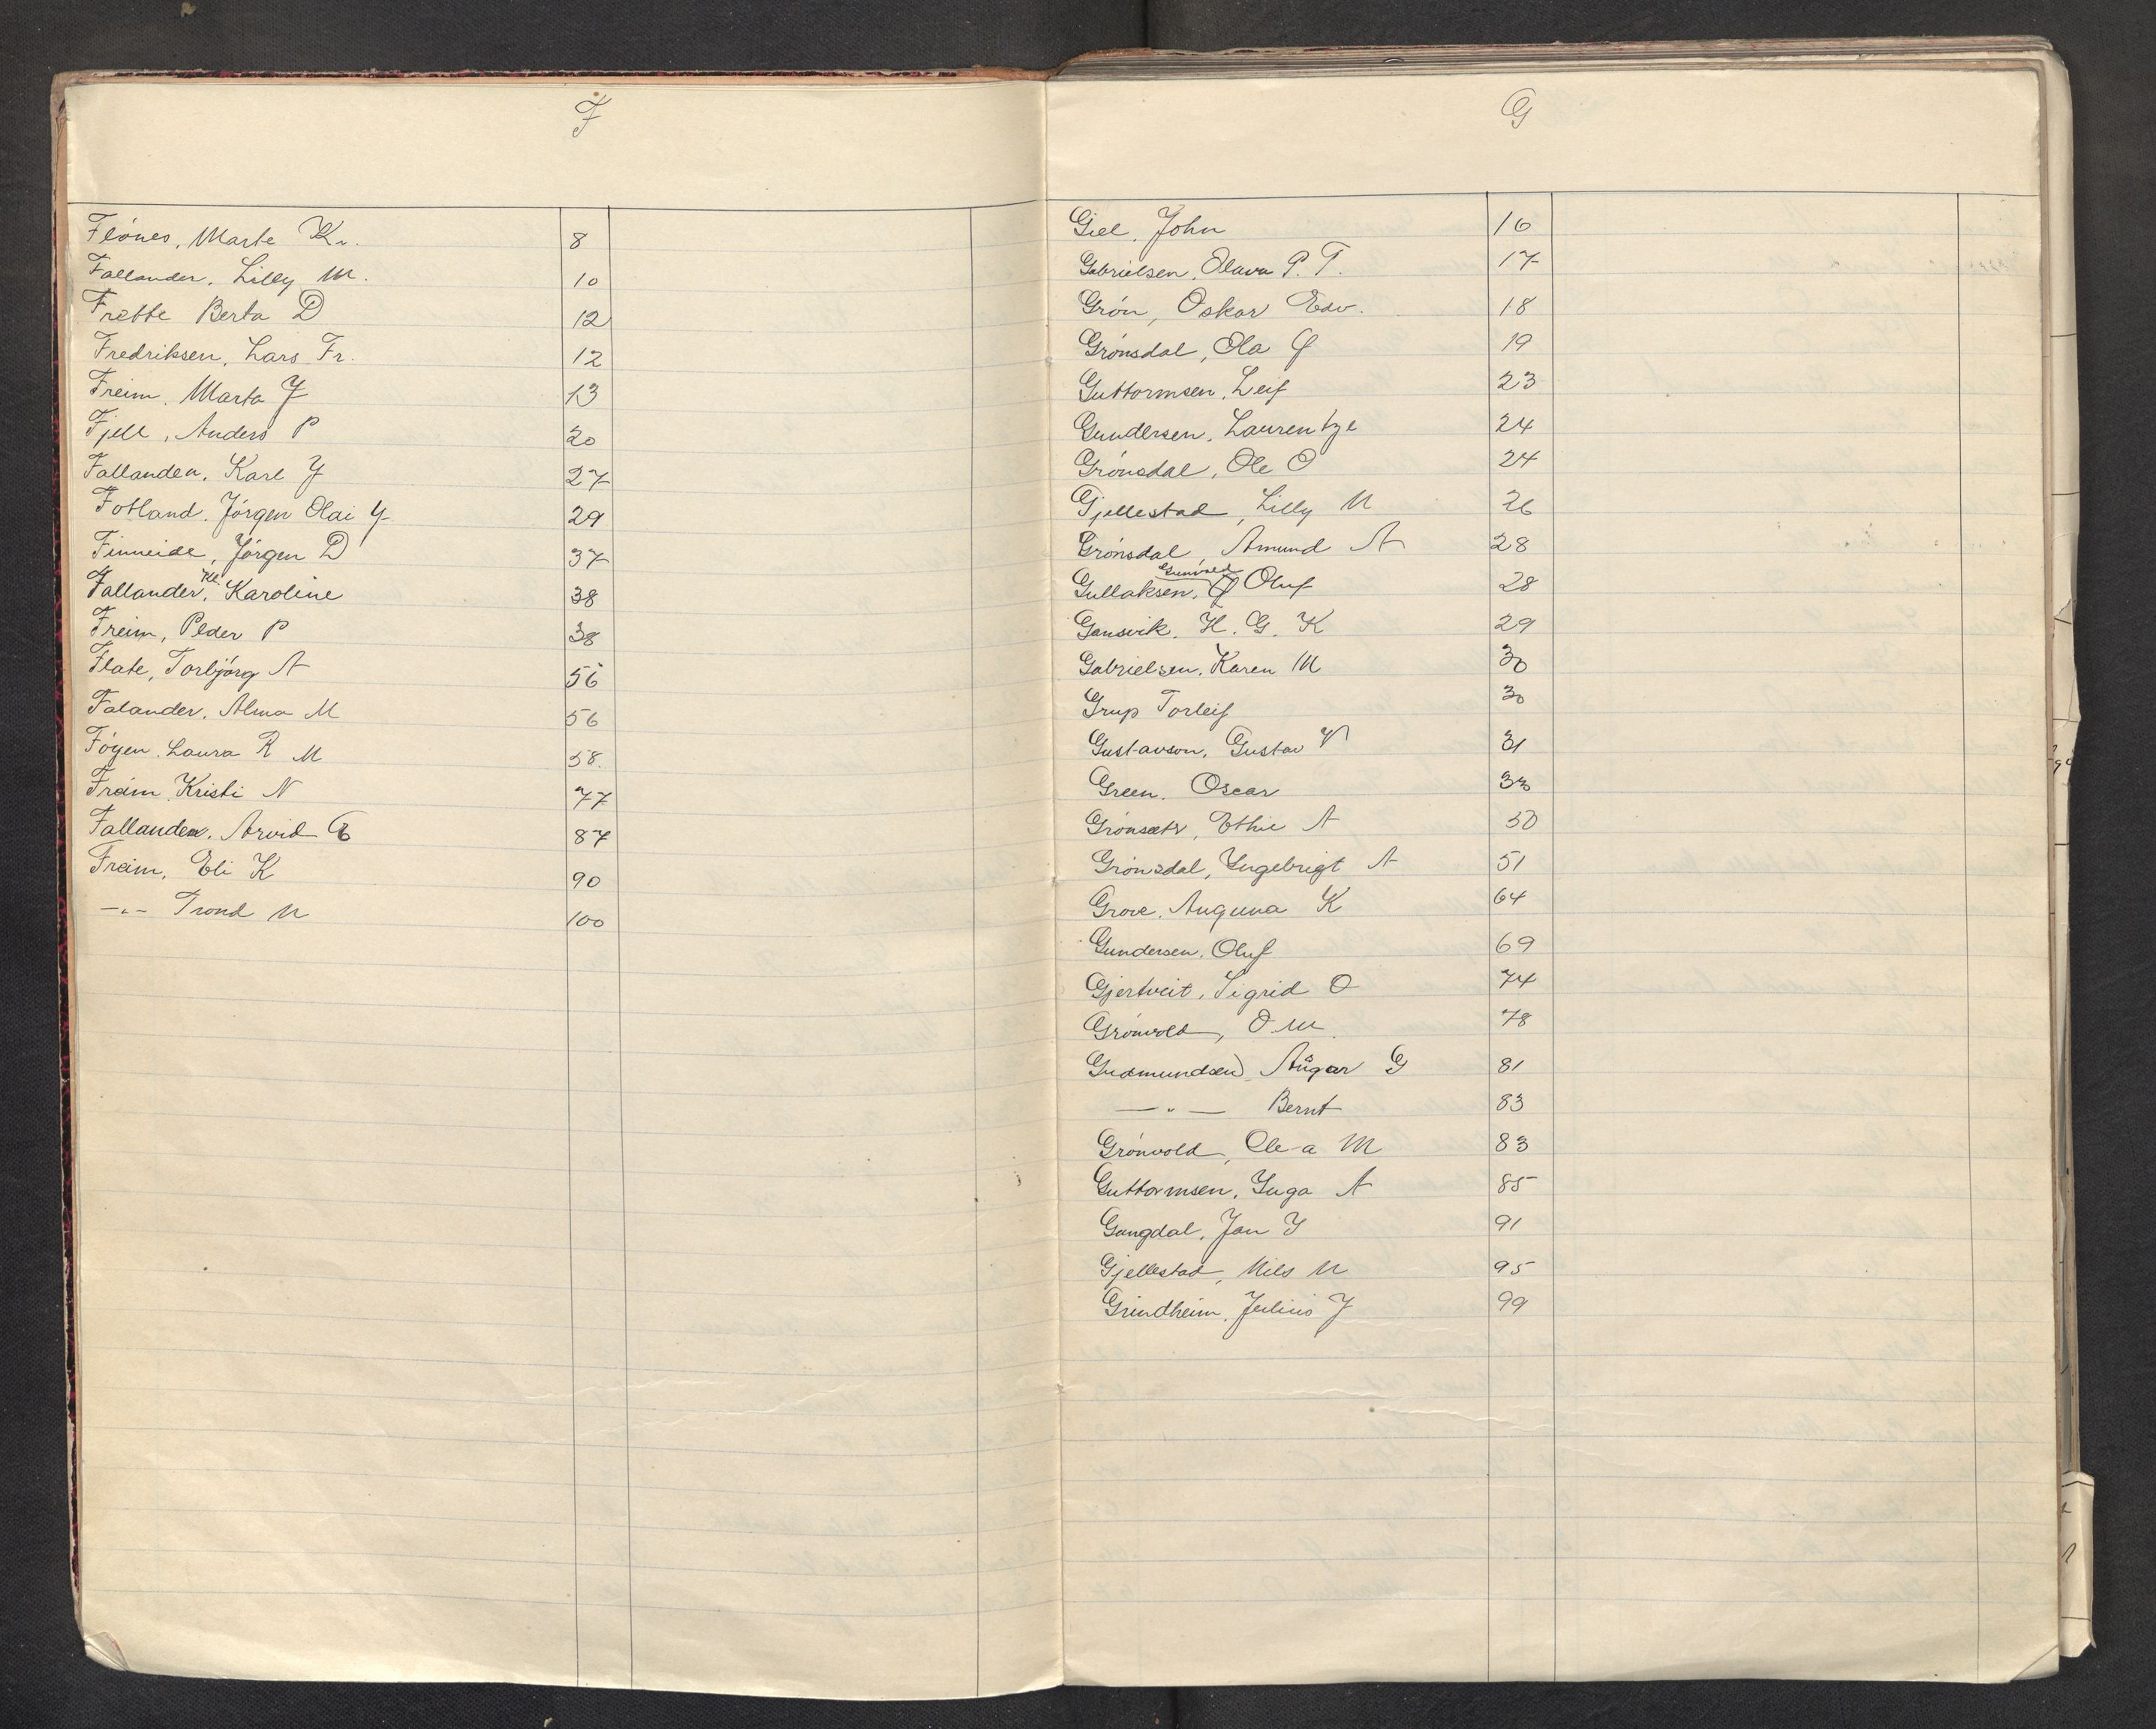 F
Flónes, Marte Kr. 8
Fallander, Lilly M. 10
Frette Berta D 12
Fredriksen, Lars Fr. 12
Freim, Marta J 13
Fjell, Anders P 20
Fallander, Karl J 27
Fotland, Jórgen Olai J 29
Finneide, Jórgen D 37
Fallander, Kl. Karoline 38
Freim, Peder P 38
Flate, Torbjórg A 56
Falander, Alma M 56
Fóyen Laura R M 58.
Freim, Kristi N 77
Fallander, Arvid 87
Freim, Eli K 90
—"— Trond N 100
G
Giel, John 16
Gabrielsen, Olava P. T. 17
Grón, Oskar Edv. 18
Grónsdal, Ola 19
Guttormsen, Leif 23
Gundersen, Laurentze 24
Grónsdal, Ole O 24
Gjellestad, Lilly N 26
Grónsdal, Amund A 28
Gunvald
Gullaksen, Oluf 28
Gansvik, H. G. K 29
Gabrielsen, Karen M 30
Grup Torleif 30
Gustavson, Gustav V 31
Green, Oscar 33
Grónsætr, Ethie A 50
Grónsdal, Ingebrigt A 51
Grove, Auguna K 64
Gundersen, Oluf 69
Gjertveit, Sigrid O 74
Grónvold, O M. 78
Gudmundsen, Aûgar G 81
—"— Bernt 83
Grónvold, Ole-a M 83
Guttormsen, Inga A 85
Gangdal, Jan J 91
Gjellestad, Nils N 95
Grindheim, Julius J 99